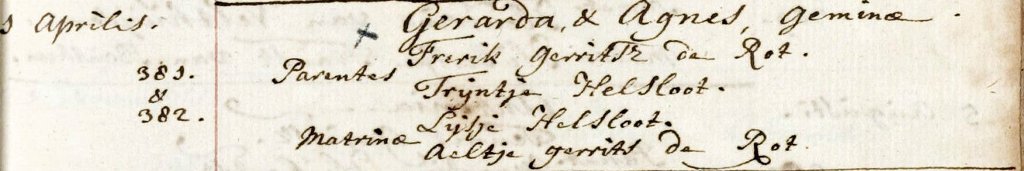 5 Aprilis. Gerarda, & Agnes, Geminæ.
381. & 382. Parentes Frerik Gerritsz de Rot.
Trÿntje Helsloot.
Matrinæ Lÿsje Helsloot.
Aeltje gerrits de Rot